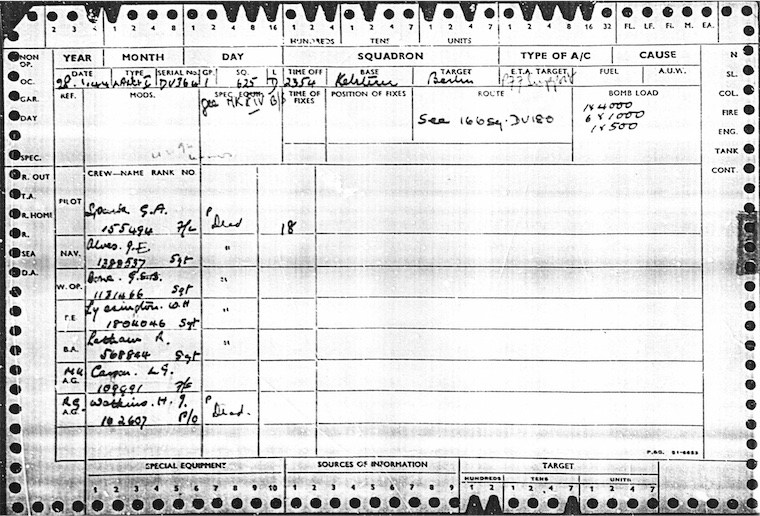 2 3 4 1 2 4 7 1 2 3 4 5 6 7 8 9 10 1 2 4 7 1 2 4 7 1 2 4 7 1 2 4 8 16 32 FL. LF. FL. M. EA.
HUNDREDS TENS UNITS
NON OP. YEAR MONTH DAY SQUADRON TYPE OF A/C CAUSE N
OC. DATE TYPE SERIAL No. GP. SQ. L TIME OFF BASE TARGET E.T.A. TARGET FUEL A.U.W. SL.
DV364 1 625 D 2354 Kelstern Berlin
GAR. REF. MODS. SPEC. EQUIP. TIME OF FIXES POSITION OF FIXES ROUTE BOMB LOAD COL.
gee MK IV
1 x 4000
DAY See 166 Sq. DV180 6 x 1000 FIRE
1 x 500
ENG.
SPEC. TANK
R. OUT CREW—NAME RANK NO. CONT.
T.A.
R. HOME PILOT G.A. P
R. 155494 F/L Dead 18
SEA NAV. Alves. J.E. "
1388537 Sgt
D.A.
W. OP. "
1181466 Sgt
F.E. W.H "
1804046 Sgt
B.A. Latham R. "
568844 Sgt
MU A.G. L.G.
109691
RG A.G. Watkins. H. J. P
102607 P/O Dead.
P.&G. 51-6653
SPECIAL EQUIPMENT SOURCES OF INFORMATION TARGET
HUNDREDS TENS UNITS
1 2 3 4 5 6 7 8 9 10 1 2 3 4 5 6 7 8 9 1 2 4 7 1 2 4 7 1 2 4 7